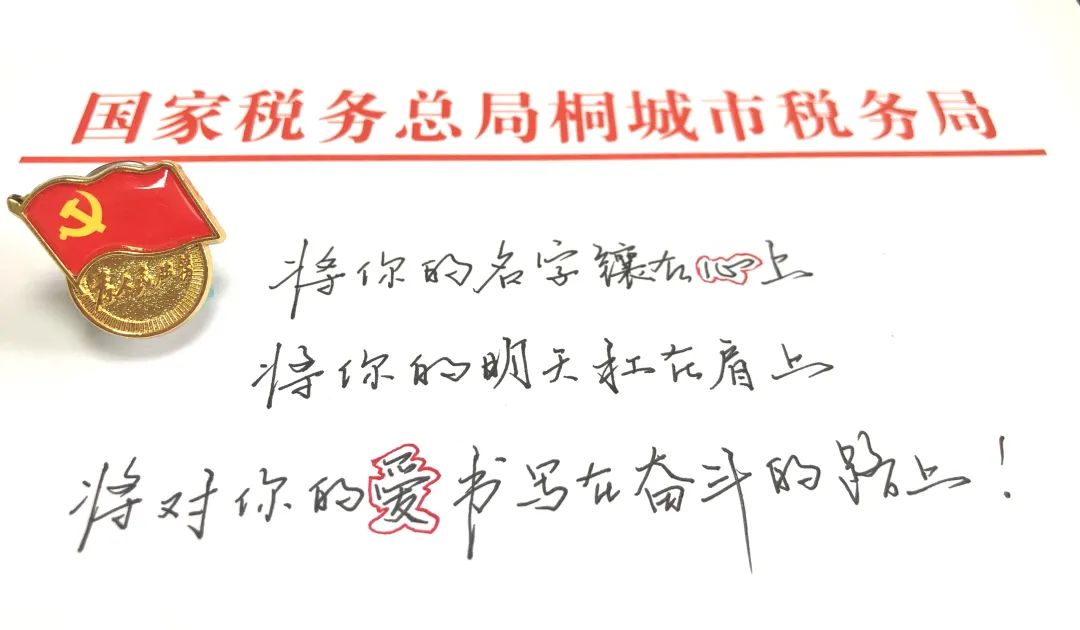 国家税务总局桐城市税务局
为人民服务
将你的名字镶在心上
将你的明天扛在肩上
将对你的爱书写在奋斗的路上！